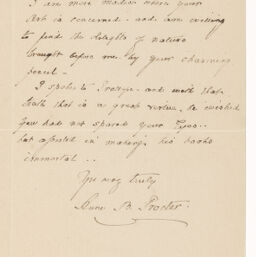 I am more modest where your
Art is concerned - and am willing
to find the delights of nature
brought before me by your charming
pencil -
I spoke to and with that
truth that is a great virtue, he wished
you had not spared your Eyes..
but assisted in making his books
immortal ..
Yrs very truly
Anne B. Procter.